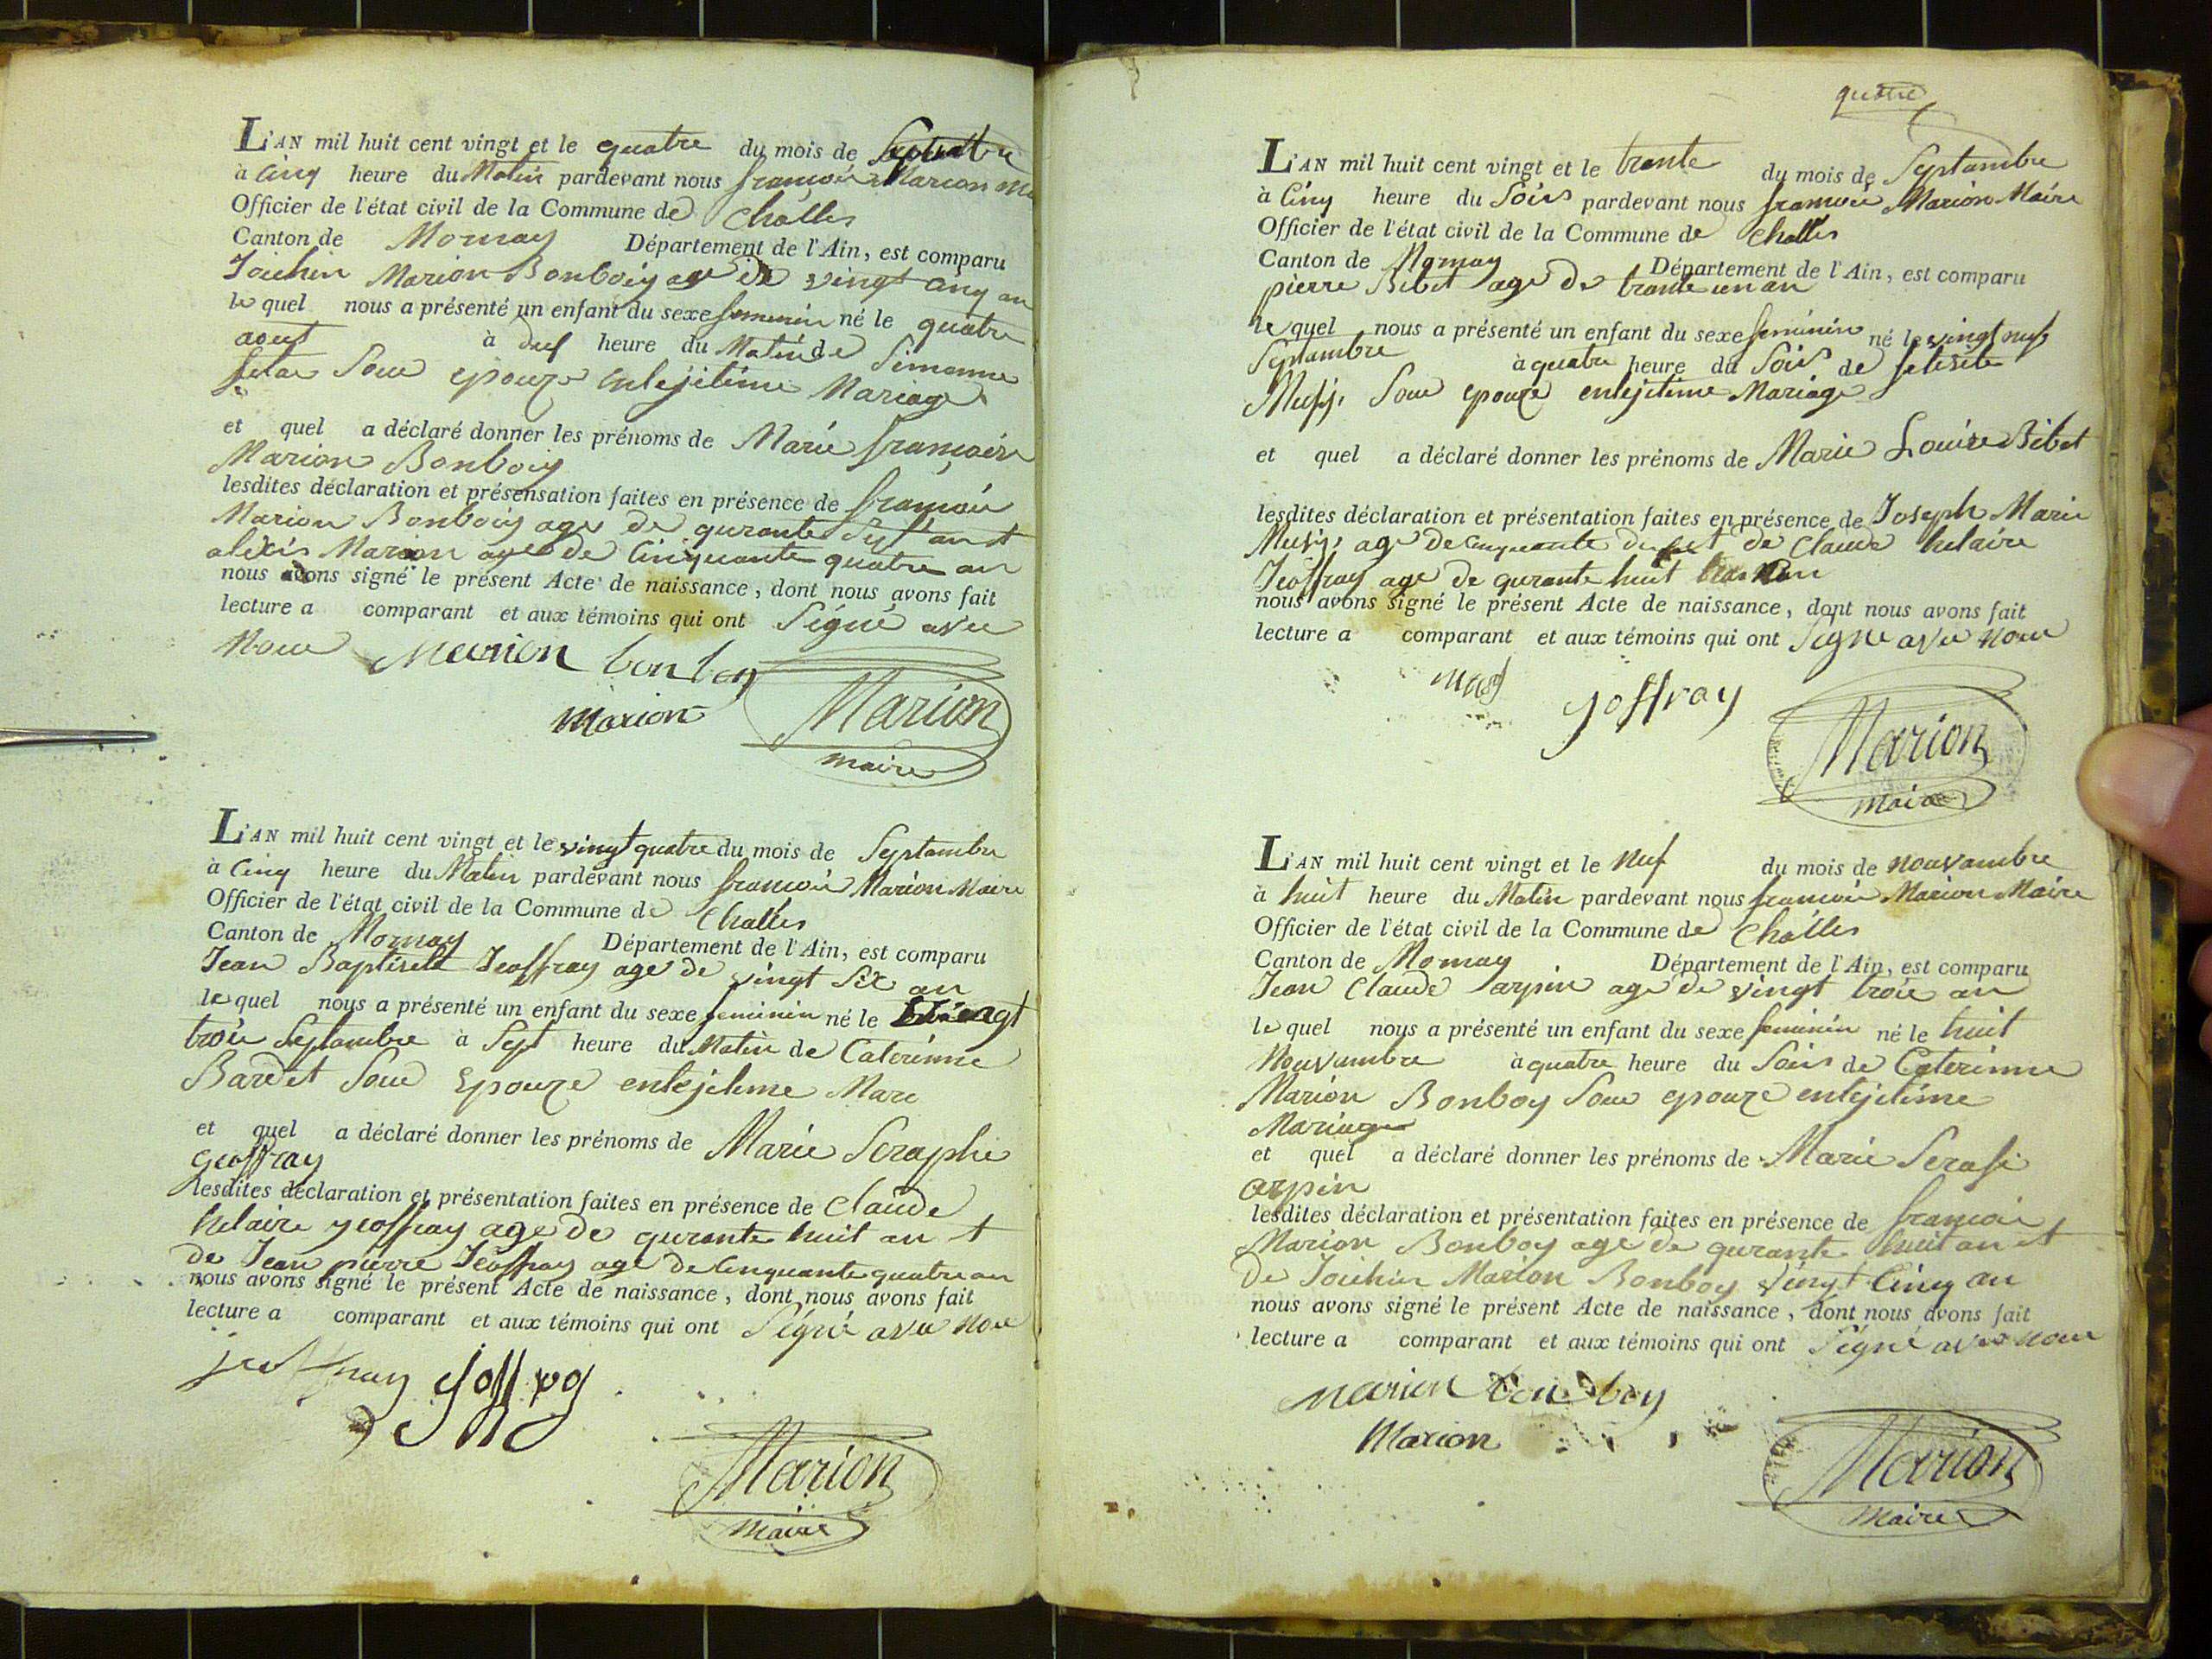 L'AN mil huit cent vingt et le quatre du mois de Septambre
à Cinq heure du Matin pardevant nous francois Marion
Officier de l'état civil de la Commune de Challes
Canton de Mornay Département de l'Ain, est comparu
Joichin Marion Bonboiy age de vingt cinq an
le quel nous a présenté un enfant du sexe feminin né le quatre
aout à heure du Matin de Simonne
Soue epouze enlejitime Mariage
et quel a déclaré donner les prénoms de Marie francoise
Marion Bonboiy
lesdites déclaration et présensation faites en présence de francois
Marion Bonboiy age de qurante Sept an et
alexis Marion age de Cinquante quatre an
nous avons signé le présent Acte de naissance, dont nous avons fait
lecture a comparant et aux témoins qui ont Signé avec
Nous Marion bonboy
Marion Marion
maire
L'AN mil huit cent vingt et le vingt quatre du mois de Septambre
à Cinq heure du Matin pardevant nous francois Marion Maire
Officier de l'état civil de la Commune de Challes
Canton de Mornay Département de l'Ain, est comparu
Jean Baptiselt Jeoffray age de vingt Six an
le quel nous a présenté un enfant du sexe feminin né le vingt
trois Septambre à Sept heure du Matin de Caterinne
Bardet Soue Epouze enlejitime Mare
et quel a déclaré donner les prénoms de Marie Seraphie
geoffray
lesdites déclaration et présentation faites en présence de Claude
helaire yeoffray age de qurante huit an et
de Jean pierre Jeoffray age de Cinquante quatre an
nous avons signé le présent Acte de naissance, dont nous avons fait
lecture a comparant et aux témoins qui ont Signé avec nous
jeoffray
Marion
Maire
quatre
L'AN mil huit cent vingt et le trante du mois de Septambre
à Cinq heure du Soir pardevant nous francois Marion Maire
Officier de l'état civil de la Commune de Challes
Canton de Mornay Département de l'Ain, est comparu
pierre Bibet age de trante un an
le quel nous a présenté un enfant du sexe feminin né le vingt neuf
Septambre à quatre heure du Soir de felisite
Soue epouze enlejitime Mariage
et quel a déclaré donner les prénoms de Marie Louise Bibet
lesdites déclaration et présentation faites en présence de Joseph Marie
age de Cinquante et de Claude helaire
Jeoffray age de qurante huit an
nous avons signé le présent Acte de naissance, dont nous avons fait
lecture a comparant et aux témoins qui ont Signe avec nous
joffray
Marion
Maire
L'AN mil huit cent vingt et le Neuf du mois de Nouvambre
à huit heure du Matin pardevant nous francois Marion Maire
Officier de l'état civil de la Commune de Challes
Canton de Mornay Département de l'Ain, est comparu
Jean Claude arpin age de vingt trois an
le quel nous a présenté un enfant du sexe feminin né le huit
Nouvambre à quatre heure du Soir de Caterinne
Marion Bonboy Soue epouze enlejitime
Mariage
et quel a déclaré donner les prénoms de Marie Serafi
arpin
lesdites déclaration et présentation faites en présence de francois
Marion Bonboy age de qurante huit an et
de Joichin Marion Bonboy vingt Cinq an
nous avons signé le présent Acte de naissance, dont nous avons fait
lecture a comparant et aux témoins qui ont Signé avec nous
Marion bonboy
Marion
Marion
Maire